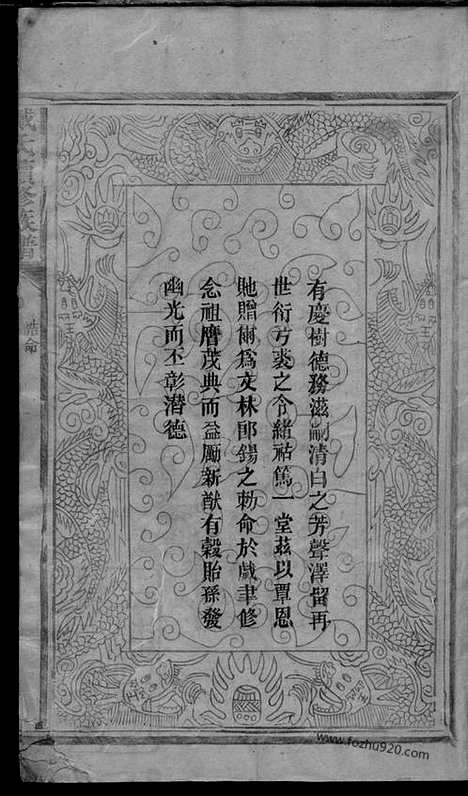 有慶樹德務滋嗣清白之芳聲澤留再
世衍弓裘之令緒祜篤一堂茲以覃恩
貤贈爾爲文林郎錫之勅命於戲聿修
念祖膺茂典而益勵新猷有穀貽孫發
幽光而丕彰潛德
氏重修族譜
誥命
www.fozhu920.com